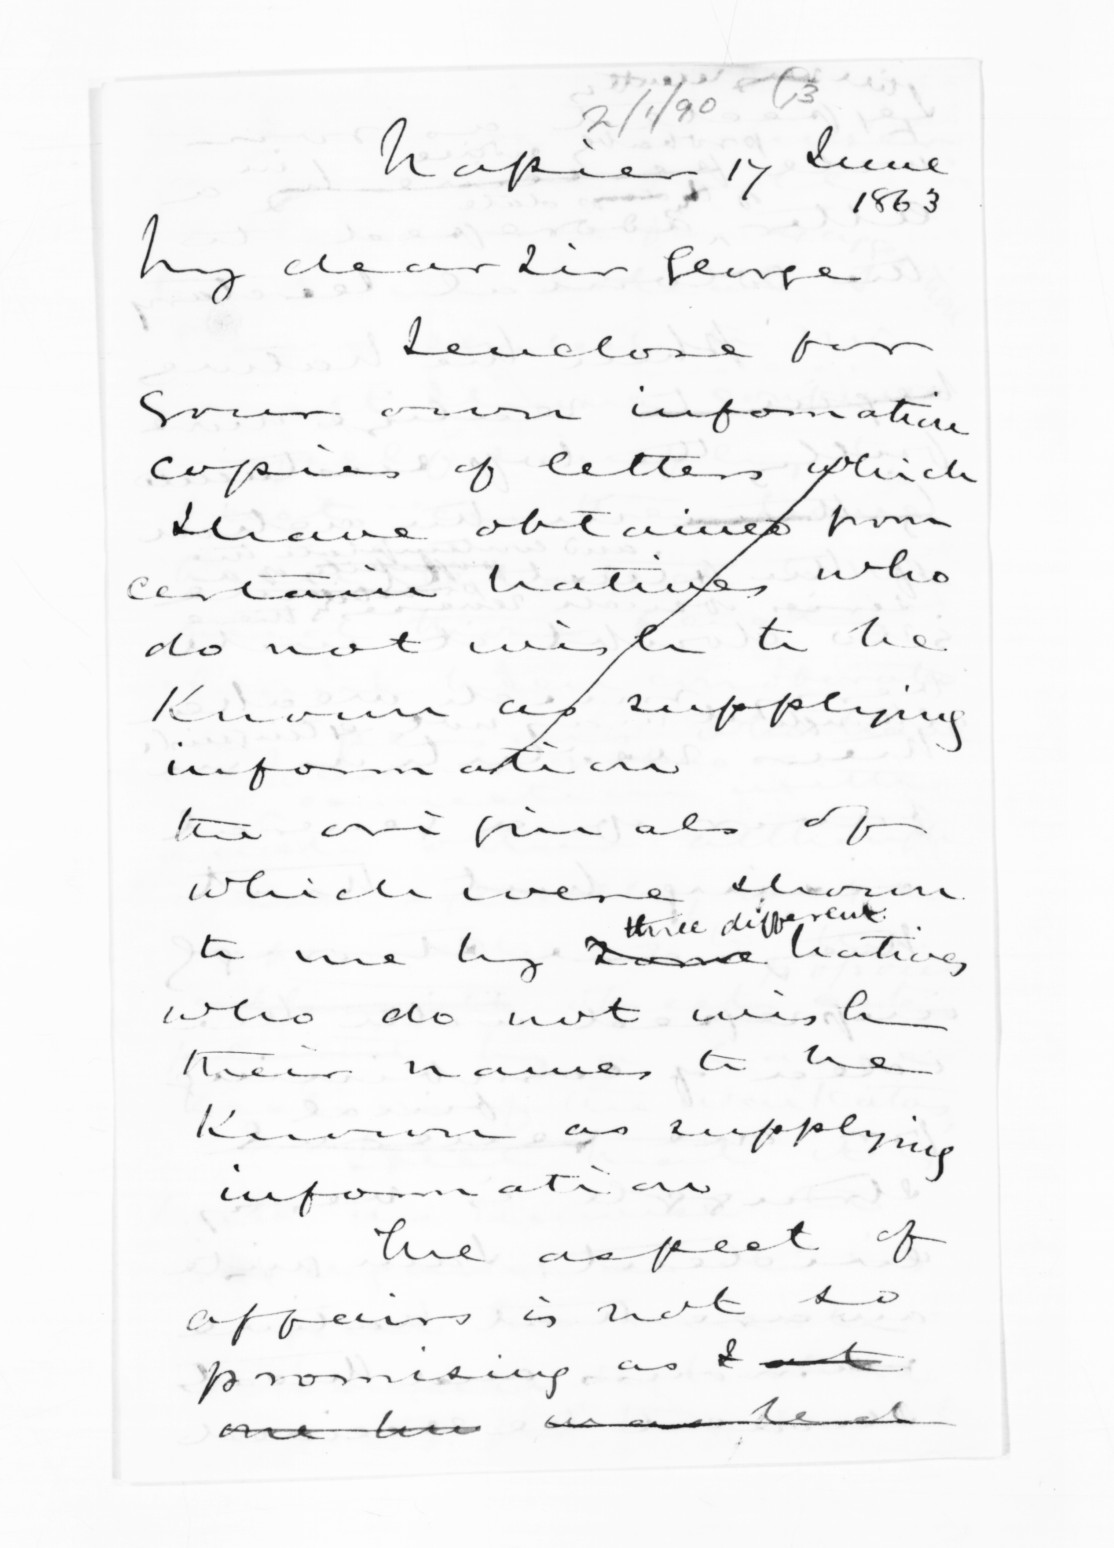 2/1/90 (13
Napier 17 June
1863
My dear Sir George
I enclose for
your own infomation
copies of letters which
I have obtained from
certain Natives who
do not wish to be
Known as supplying
information
the originals of
which were shown
three different
to me by some Natives
who do not wish
their names to be
Known as supplying
information
The aspect of
affairs is not so
promising as I at
one time